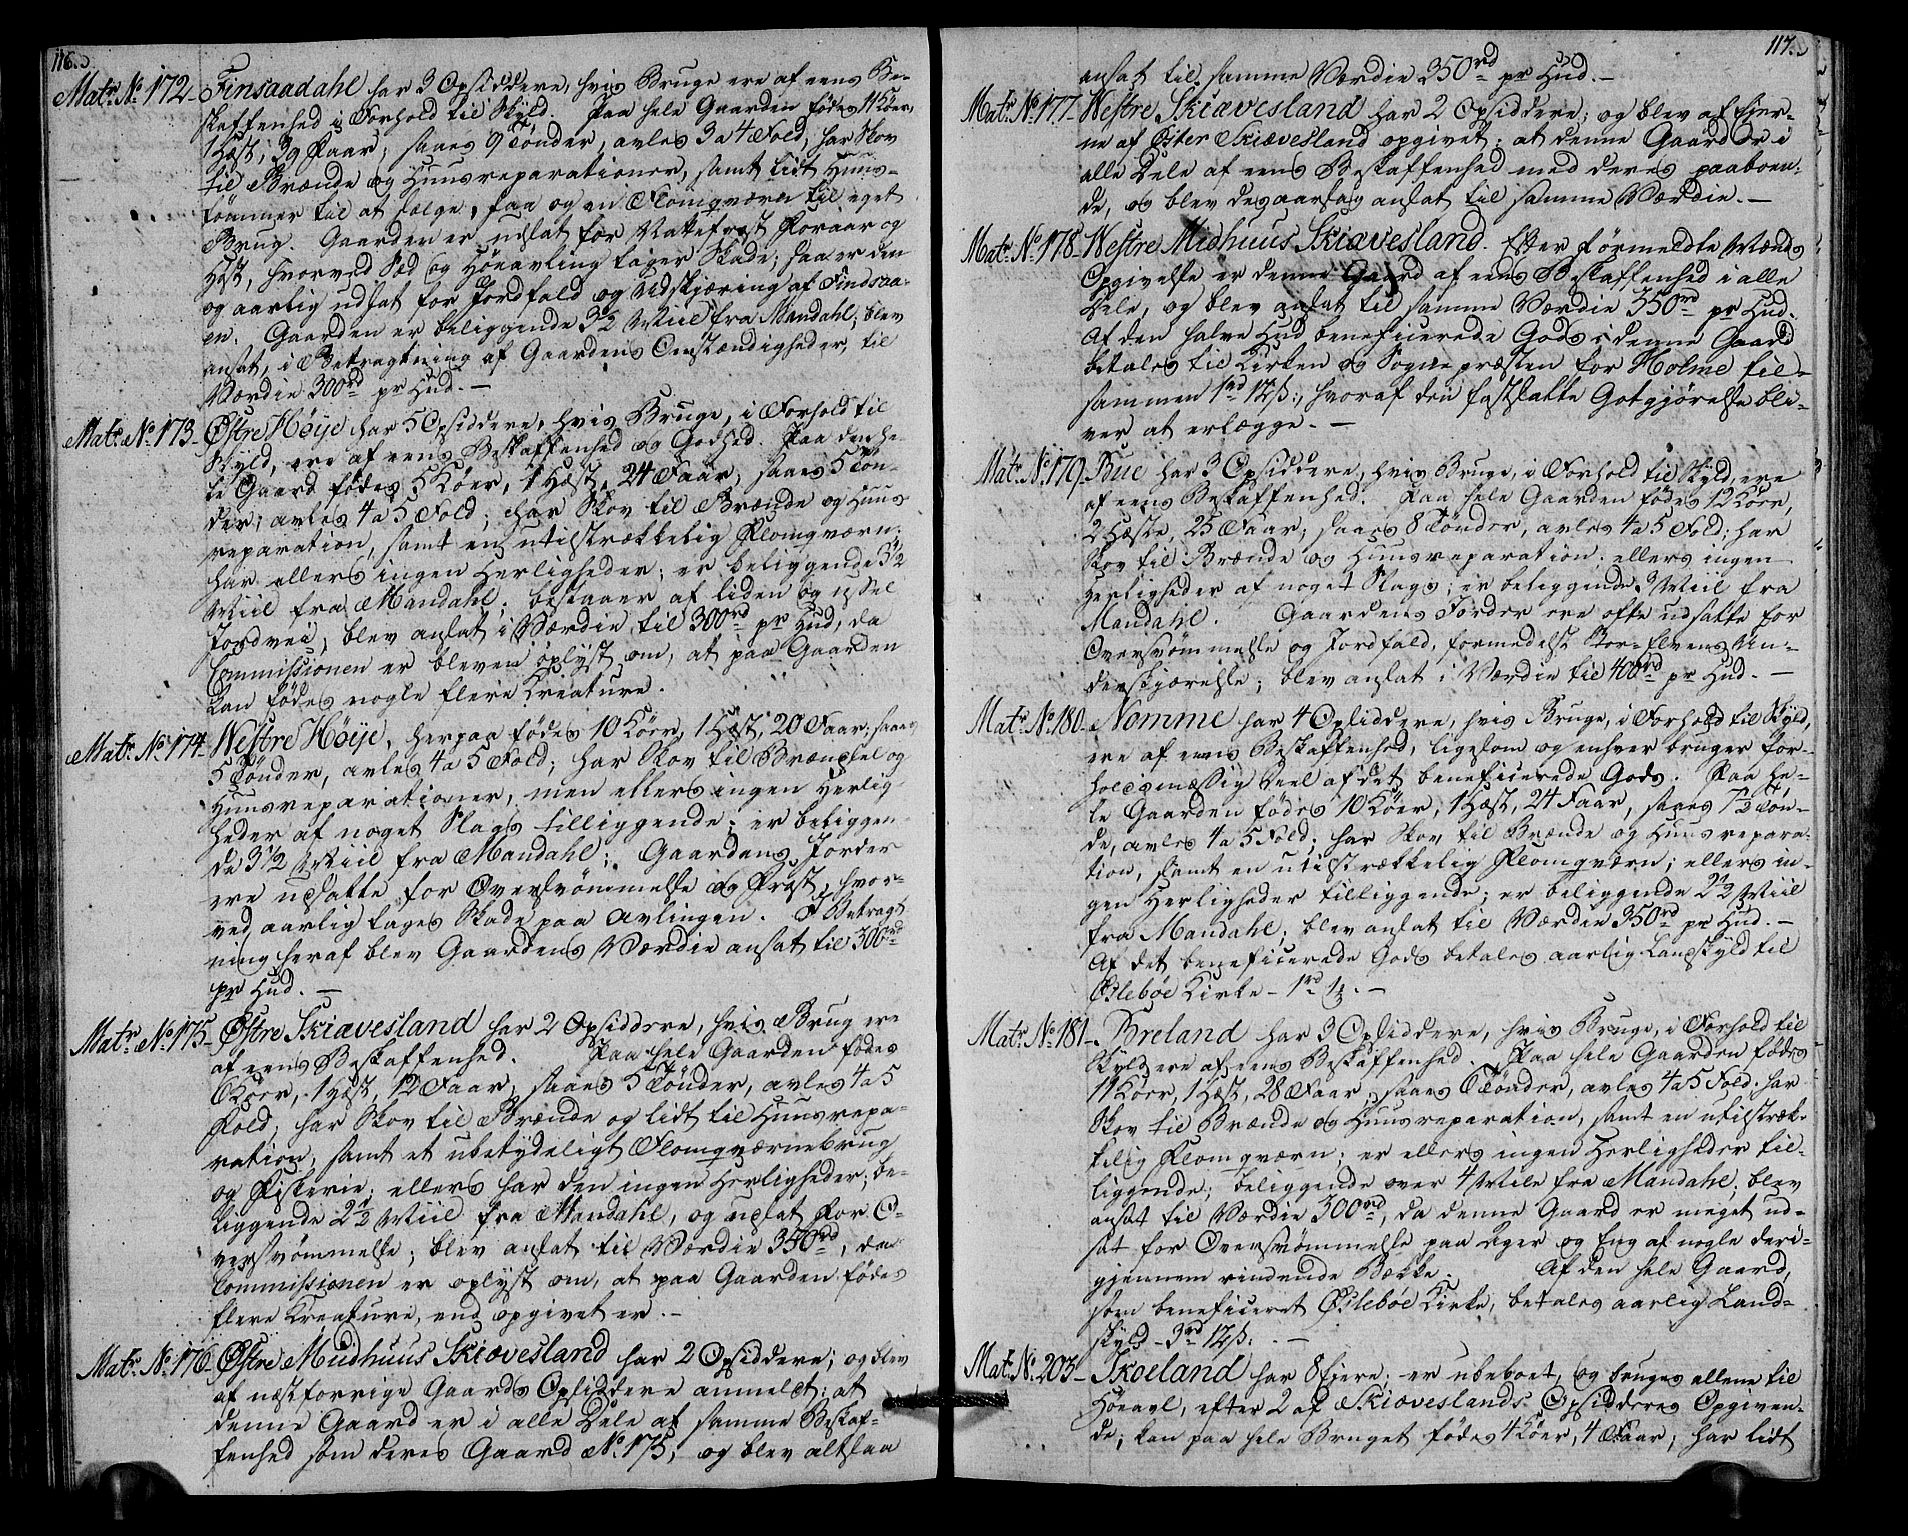 116.
Matr. No. 172 - Finsaadahl har 3 Opsiddere, hvis Bruge ere af eens Be-
skaffenhed i Forhold til Skyld. Paa hele Gaarden födes 11 Köer,
1 Hæst, 39 Faar; saaes 9 Tönder, avles 3 a 4 Fold; har Skov
til Brænde og Huusreparationer, samt lidt Huus-
tömmer til at sælge, saa og en Flomqværn til eget
Brug. Gaarden er udsat for Nattefrost Foraar og
Höst, hvorved Sæd og Höeavling tager Skade; saa er den
og aarlig udsat for Jordfald og Udskjæring af Findsaa-
en. Gaarden er beliggende 3½ Miil fra Mandahl; blev
ansat, i Betragtning af Gaardens Omstændigheder, til
Værdie 300rd pr Hud. -
Matr. No. 173 - Östre Höije har 5 Opsiddere, hvis Bruge, i Forhold til
Skyld, ere af eens Beskaffenhed og Godhed. Paa den he-
le Gaard födes 5 Köer, 1 Hæst, 24 Faar; saaes 5 Tön-
der; avles 4 a 5 Fold; har Skov til Brænde og Huus
reparation, samt en utilstrækkelig Flomqværn;
har ellers ingen Herligheder; er beliggende 3½
Miil fra Mandahl; bestaaer af liden og ussel
Jordvei; blev ansat i Værdie til 300rd pr Hud, da
Commissionen er bleven oplyst om, at paa Gaarden
kan födes nogle flere Kreature.
Matr. No. 174 - Westre Höije, herpaa födes 10 Köer, 1 Hæst, 20 Faar; saaes
5 Tönder, avles 4 a 5 Fold; har Skov til Brændsel og
Huusreparationer, men ellers ingen Herlig-
heder af noget Slags tilliggende; er beliggen-
de 3½ Miil fra Mandahl; Gaardens Jorder
ere udsatte for Oversvömmelse og Frost, hvor-
ved aarlig tages Skade paa Avlingen. I Betragt
ning heraf blev Gaardens Værdie ansat til 300rd
pr Hud. -
Matr. No. 175 - Östre Skiævesland har 2 Opsiddere, hvis Brug ere
af eens Beskaffenhed. Paa hele Gaarden födes
6 Köer, 1 Hæst, 12 Faar; saaes 5 Tönder, avles 4 a 5
Fold; har Skov til Brænde og lidt til Huusrepa-
ration, samt et ubetydeligt Flomqværnebrug
og Fiskerie; ellers har den ingen Herligheder; be-
liggende 2½ Miil fra Mandahl, og udsat for O-
versvömmelse; blev ansat til Værdie 350rd, da
Commissionen er oplyst om, at paa Gaarden födes
flere Kreature, end opgivet er. -
Matr. No. 176 - Östre Midhuus Skiævesland har 2 Opsiddere; og blev
af næstforrige Gaards Opsiddere anmeldt: at
denne Gaard er i alle Dele af samme Beskaf-
fenhed som deres Gaard No. 175; og blev altsaa
117.
ansat til samme Værdie 350rd pr Hud. -
Matr. No. 177 - Westre Skiævesland har 2 Opsiddere; og blev af Eier-
ne af Öster Skiævesland opgivet: at denne Gaard er i
alle Dele af eens Beskaffenhed med deres paaboen-
de, og blev desaarsag ansat til samme Værdie. -
Matr. No. 178 - Westre Midhuus Skiævesland. Efter förmeldte Mænds
Opgivelse er denne Gaard af eens Beskaffenhed i alle
Dele, og blev ansat til samme Værdie 350rd pr Hud.
Af den halve Hud beneficerede Gods i denne Gaard
betales til Kirken og Sognepræsten for Holme til-
sammen 1rd 12ß, hvoraf den fastsatte Gotgjörelse bli-
ver at erlægge. -
Matr. No. 179. Bue har 3 Opsiddere, hvis Bruge, i Forhold til Skyld, ere
af eens Beskaffenhed. Paa hele Gaarden födes 12 Köer,
2 Hæste, 25 Faar; saaes 8 Tönder, avles 4 a 5 Fold; har
Skov til Brænde og Huusreparation; ellers ingen
Herligheder af noget Slags; er beliggende 3 Miil fra
Mandahl. Gaardens Jorder ere ofte udsatte for
Oversvömmelse og Jordfald, formedelst Bor-Elvens Un-
derskjærelse; blev ansat i Værdie til 400rd pr Hud. -
Matr. No. 180 - Nomme har 4 Opsiddere, hvis Bruge, i Forhold til Skyld,
ere af eens Beskaffenhed, ligesom og enhver bruger for-
holdsmæssig Deel af det beneficerede Gods. Paa he-
le Gaarden födes 10 Köer, 1 Hæst, 24 Faar, saaes 7½ Tön-
de, avles 4 a 5 Fold; har Skov til Brænde og Huusrepara-
tion, samt en utilstrækkelig Flomqværn; ellers in-
gen Herligheder tilliggende; er beliggende 2½ Miil
fra Mandahl; blev ansat til Værdie 350rd pr Hud. -
Af det beneficerede Gods betales aarlig Landskyld til
Öslebøe Kirke - 1rd -
Matr. No. 181 - Breland har 3 Opsiddere, hvis Bruge, i Forhold til
Skyld ere af eens Beskaffenhed. Paa hele Gaarden födes
11 Köer, 1 Hæst, 28 Faar; saaes 6 Tönder, avles 4 a 5 Fold; har
Skov til Brænde og Huusreparation, samt en utilstræk-
kelig Flomqværn; er ellers ingen Herligheder til-
liggende; beliggende over 4 Mile fra Mandahl; blev
ansat til Værdie 300rd, da denne Gaard er meget ud-
sat for Oversvömmelse paa Ager og Eng af nogle deri-
gjennem rindende Bække. Af den hele Gaard,
som beneficeret Öslebøe Kirke, betales aarlig Land-
skyld - 3rd 12ß. -
Matr. No. 203 - Skoeland har 8 Eiere; er ubeboet, og bruges allene til
Höeavl, efter 2 af Skiæveslands Opsidderes Opgiven-
de; kan paa hele Bruget födes 4 Köer, 4 Faar; har lidt